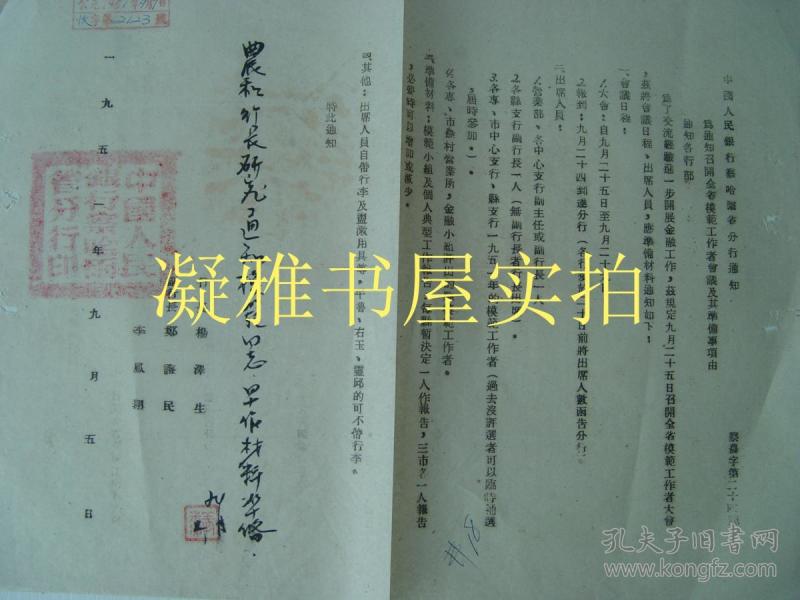 中國人民銀行察哈爾省分行通知
察農字第二十四號
為通知召開全省模範工作者會議及其準備事項由
通知各行部
為了交流經驗進一步開展金融工作,茲規定九月二十五日召開全省模範工作者大會
,茲將會議日程、出席人員,應準備材料通知如下:
一、會議日程:
1.大會:自九月二十五日至九月二十
2.報到:九月二十四到達分行(各
日前將出席人數函告分行)
二、出席人員:
1.營業部、各中心支行副主任或副行長一人
2.各縣支行副行長一人(無副行長者
3.各專、市中心支行、縣支行一九五一年的模範工作者(過去沒評選者可以臨時補選
,屆時參加。)
4.各專、市農村營業所,金融小組
範工作者。
三、準備材料:模範小組及個人典型工作
暫決定一人作報告,三市各一人報告
,必要時可以增加或減少。
四、其他:出席人員自帶行李及盥漱用具
右玉、靈邱的可不帶行李。
特此通知
楊澤生
鄭諮民
李鳳翔
一九五一年九月五日
中國人民
省分行印
第2123號
農和行長研究了通知
同志早作材料準備.
九月
凝雅书屋实拍
孔夫子旧书网
www.kongfz.com